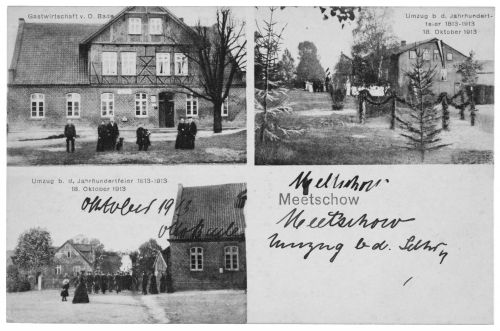 Gastwirtschaft v. O. Bade
Umzug b. d. Jahrhundert-
feier 1813-1913
18. Oktober 1913
Umzug b. d. Jahrhundertfeier 1813-1913
18. Oktober 1913
Oktober 1913
Meetschow
Meetschow
Umzug b d.